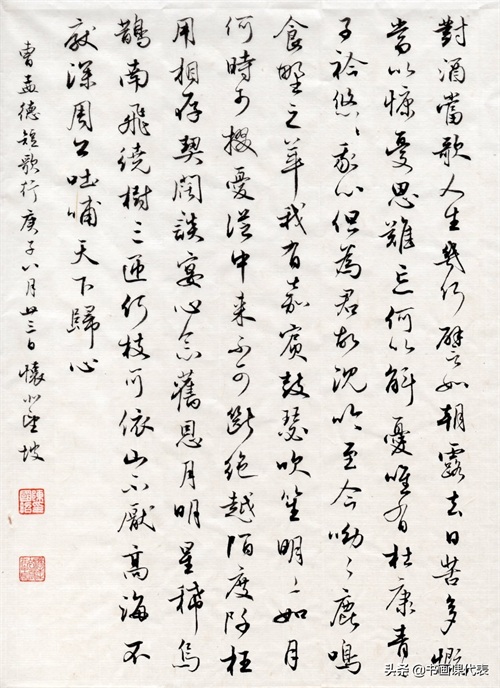 對酒當歌人生幾何譬如朝露去日苦多慨
當以慷憂思難忘何以解憂唯有杜康青
子衿悠〻我心但為君故沈吟至今呦〻鹿鳴
食野之苹我有嘉賓鼓瑟吹笙明〻如月
何時可掇憂從中來不可斷絕越陌度阡枉
用相存契闊談宴心念舊恩月明星稀烏
鵲南飛繞樹三匝何枝可依山不厭高海不
厭深周公吐哺天下歸心
曹孟德短歌行庚子八月廿三日懷小坡
头条 @书画课代表